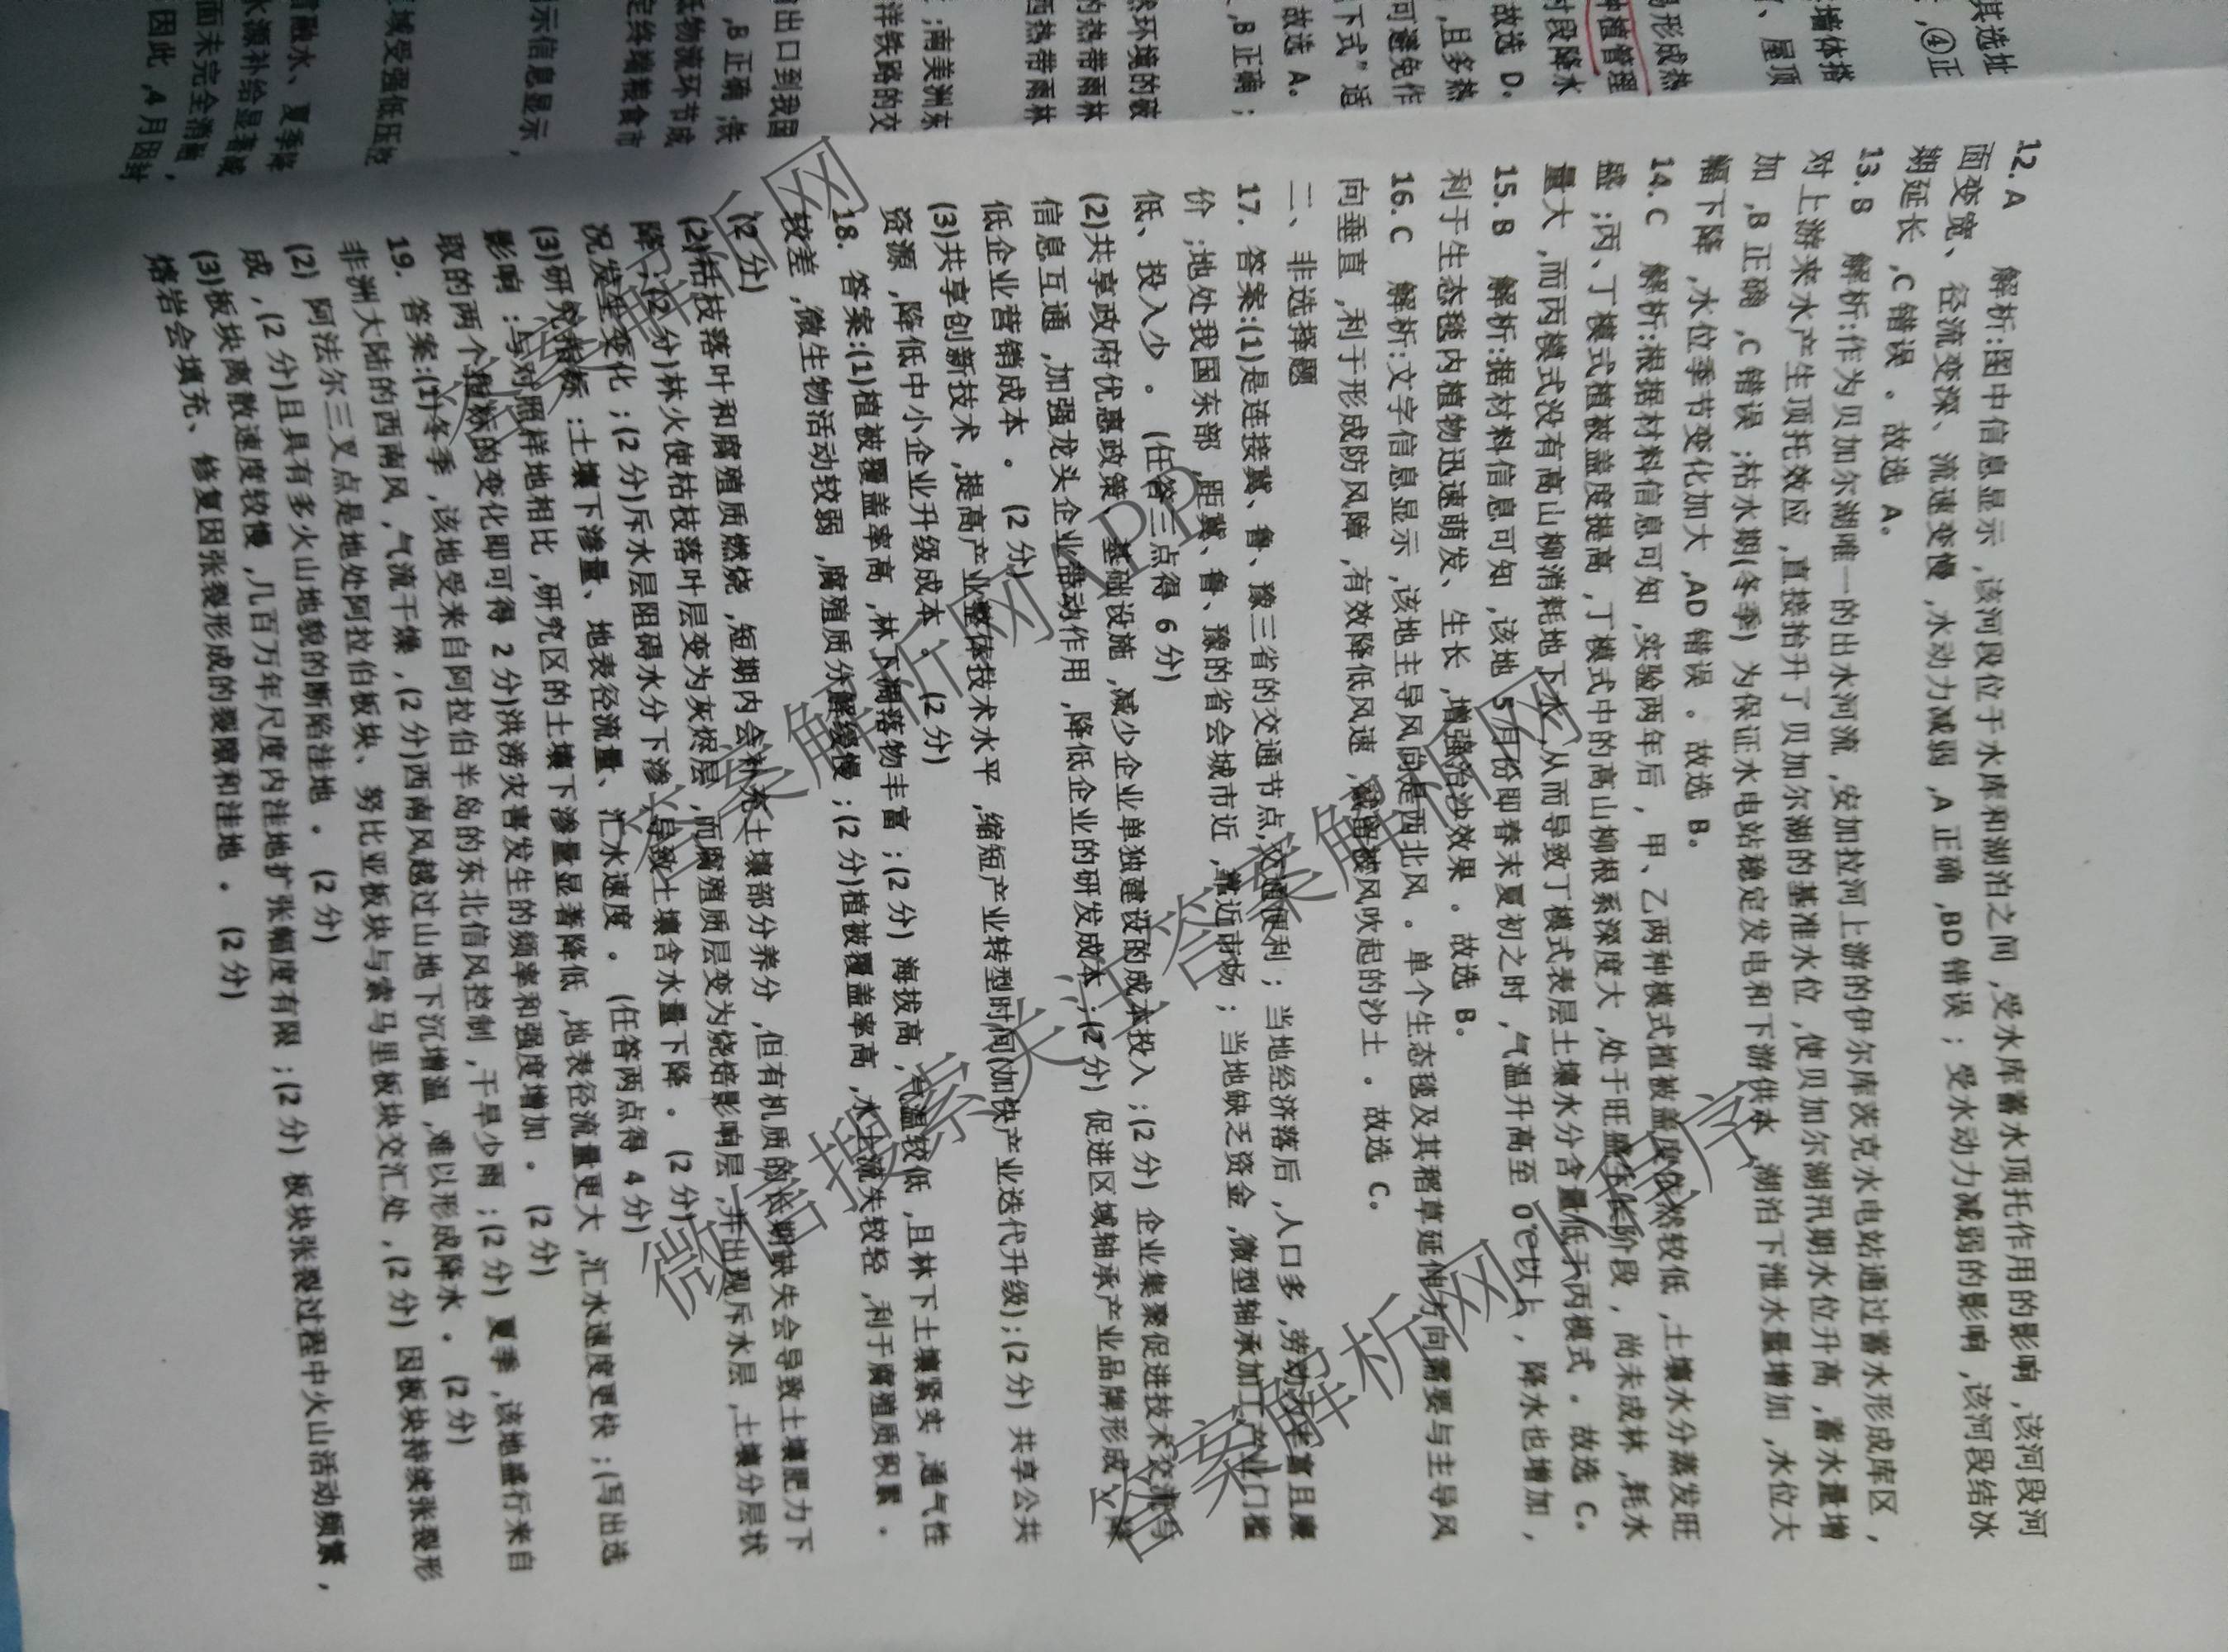 12. A 解析:图中信息显示,该河段位于水库和湖泊之间,受水库蓄水顶托作用的影响,该河段河
面变宽、径流变深、流速变慢,水动力减弱,A 正确,BD 错误;受水动力减弱的影响,该河段结冰
期延长,C 错误。故选 A。
13. B 解析:作为贝加尔湖唯一的出水河流,安加拉河上游的伊尔库茨克水电站通过蓄水形成库区,
对上游来水产生顶托效应,直接抬升了贝加尔湖的基准水位,使贝加尔湖汛期水位升高,蓄水量增
加,B 正确,C 错误;枯水期(冬季)为保证水电站稳定发电和下游供水,湖泊下泄水量增加,水位大
幅下降,水位季节变化加大,AD 错误。故选 B。
14. C 解析:根据材料信息可知,实验两年后,甲、乙两种模式植被盖度依然较低,土壤水分蒸发旺
盛;丙、丁模式植被盖度提高,丁模式中的高山柳根系深度大,处于旺盛生长阶段,尚未成林,耗水
量大,而丙模式没有高山柳消耗地下水,从而导致丁模式表层土壤水分含量低于丙模式。故选 C。
15. B 解析:据材料信息可知,该地 5 月份即春末夏初之时,气温升高至 0℃以上,降水也增加,
利于生态毯内植物迅速萌发、生长,增强治沙效果。故选 B。
16. C 解析:文字信息显示,该地主导风向是西北风。单个生态毯及其稻草延伸方向需要与主导风
向垂直,利于形成防风障,有效降低风速,截留被风吹起的沙土。故选 C。
二、非选择题
17. 答案:(1)是连接冀、鲁、豫三省的交通节点,交通便利;当地经济落后,人口多,劳动力丰富且廉
价;地处我国东部,距冀、鲁、豫的省会城市近,靠近市场;当地缺乏资金,微型轴承加工产业门槛
低、投入少。(任答三点得 6 分)
(2)共享政府优惠政策、基础设施,减少企业单独建设的成本投入;(2 分)企业集聚促进技术交流与
信息互通,加强龙头企业带动作用,降低企业的研发成本;(2 分)促进区域轴承产业品牌形成,降
低企业营销成本。(2 分)
(3)共享创新技术,提高产业整体技术水平,缩短产业转型时间(加快产业迭代升级);(2 分)共享公共
资源,降低中小企业升级成本。(2 分)
18. 答案:(1)植被覆盖率高,林下凋落物丰富;(2 分)海拔高,气温较低,且林下土壤紧实,通气性
较差,微生物活动较弱,腐殖质分解缓慢;(2 分)植被覆盖率高,水土流失较轻,利于腐殖质积累。
(2 分)
(2)枯枝落叶和腐殖质燃烧,短期内会补充土壤部分养分,但有机质的长期缺失会导致土壤肥力下
降;(2 分)林火使枯枝落叶层变为灰烬层,而腐殖质层变为烧焙影响层,并出现斥水层,土壤分层状
况发生变化;(2 分)斥水层阻碍水分下渗,导致土壤含水量下降。(2 分)
(3)研究指标:土壤下渗量、地表径流量、汇水速度。(任答两点得 4 分)
影响:与对照样地相比,研究区的土壤下渗量显著降低,地表径流量更大,汇水速度更快;(写出选
取的两个指标的变化即可得 2 分)洪涝灾害发生的频率和强度增加。(2 分)
19. 答案:(1)冬季,该地受来自阿拉伯半岛的东北信风控制,干旱少雨;(2 分)夏季,该地盛行来自
非洲大陆的西南风,气流干燥,(2 分)西南风越过山地下沉增温,难以形成降水。(2 分)
(2)阿法尔三叉点是地处阿拉伯板块、努比亚板块与索马里板块交汇处,(2 分)因板块持续张裂形
成,(2 分)且具有多火山地貌的断陷洼地。(2 分)
(3)板块离散速度较慢,几百万年尺度内洼地扩张幅度有限;(2 分)板块张裂过程中火山活动频繁,
熔岩会填充、修复因张裂形成的裂隙和洼地。(2 分)
其选址
,④正
墙体搭
、屋顶
易形成热
种植管理
时段降水
故选 D。
,且多热
可避免作
下式”适
故选 A。
,B 正确;
然环境的破
的热带雨林
西热带雨林
;南美洲东
洋铁路的交
出口到我国
,B 正确;铁
低物流环节成
定终端粮食市
示信息显示,
域受强低压控
雪融水、夏季降
水源补给显著减
面未完全消融,
因此,4 月因封
微信搜索关注答案解析网
答案解析网APP
答案解析网